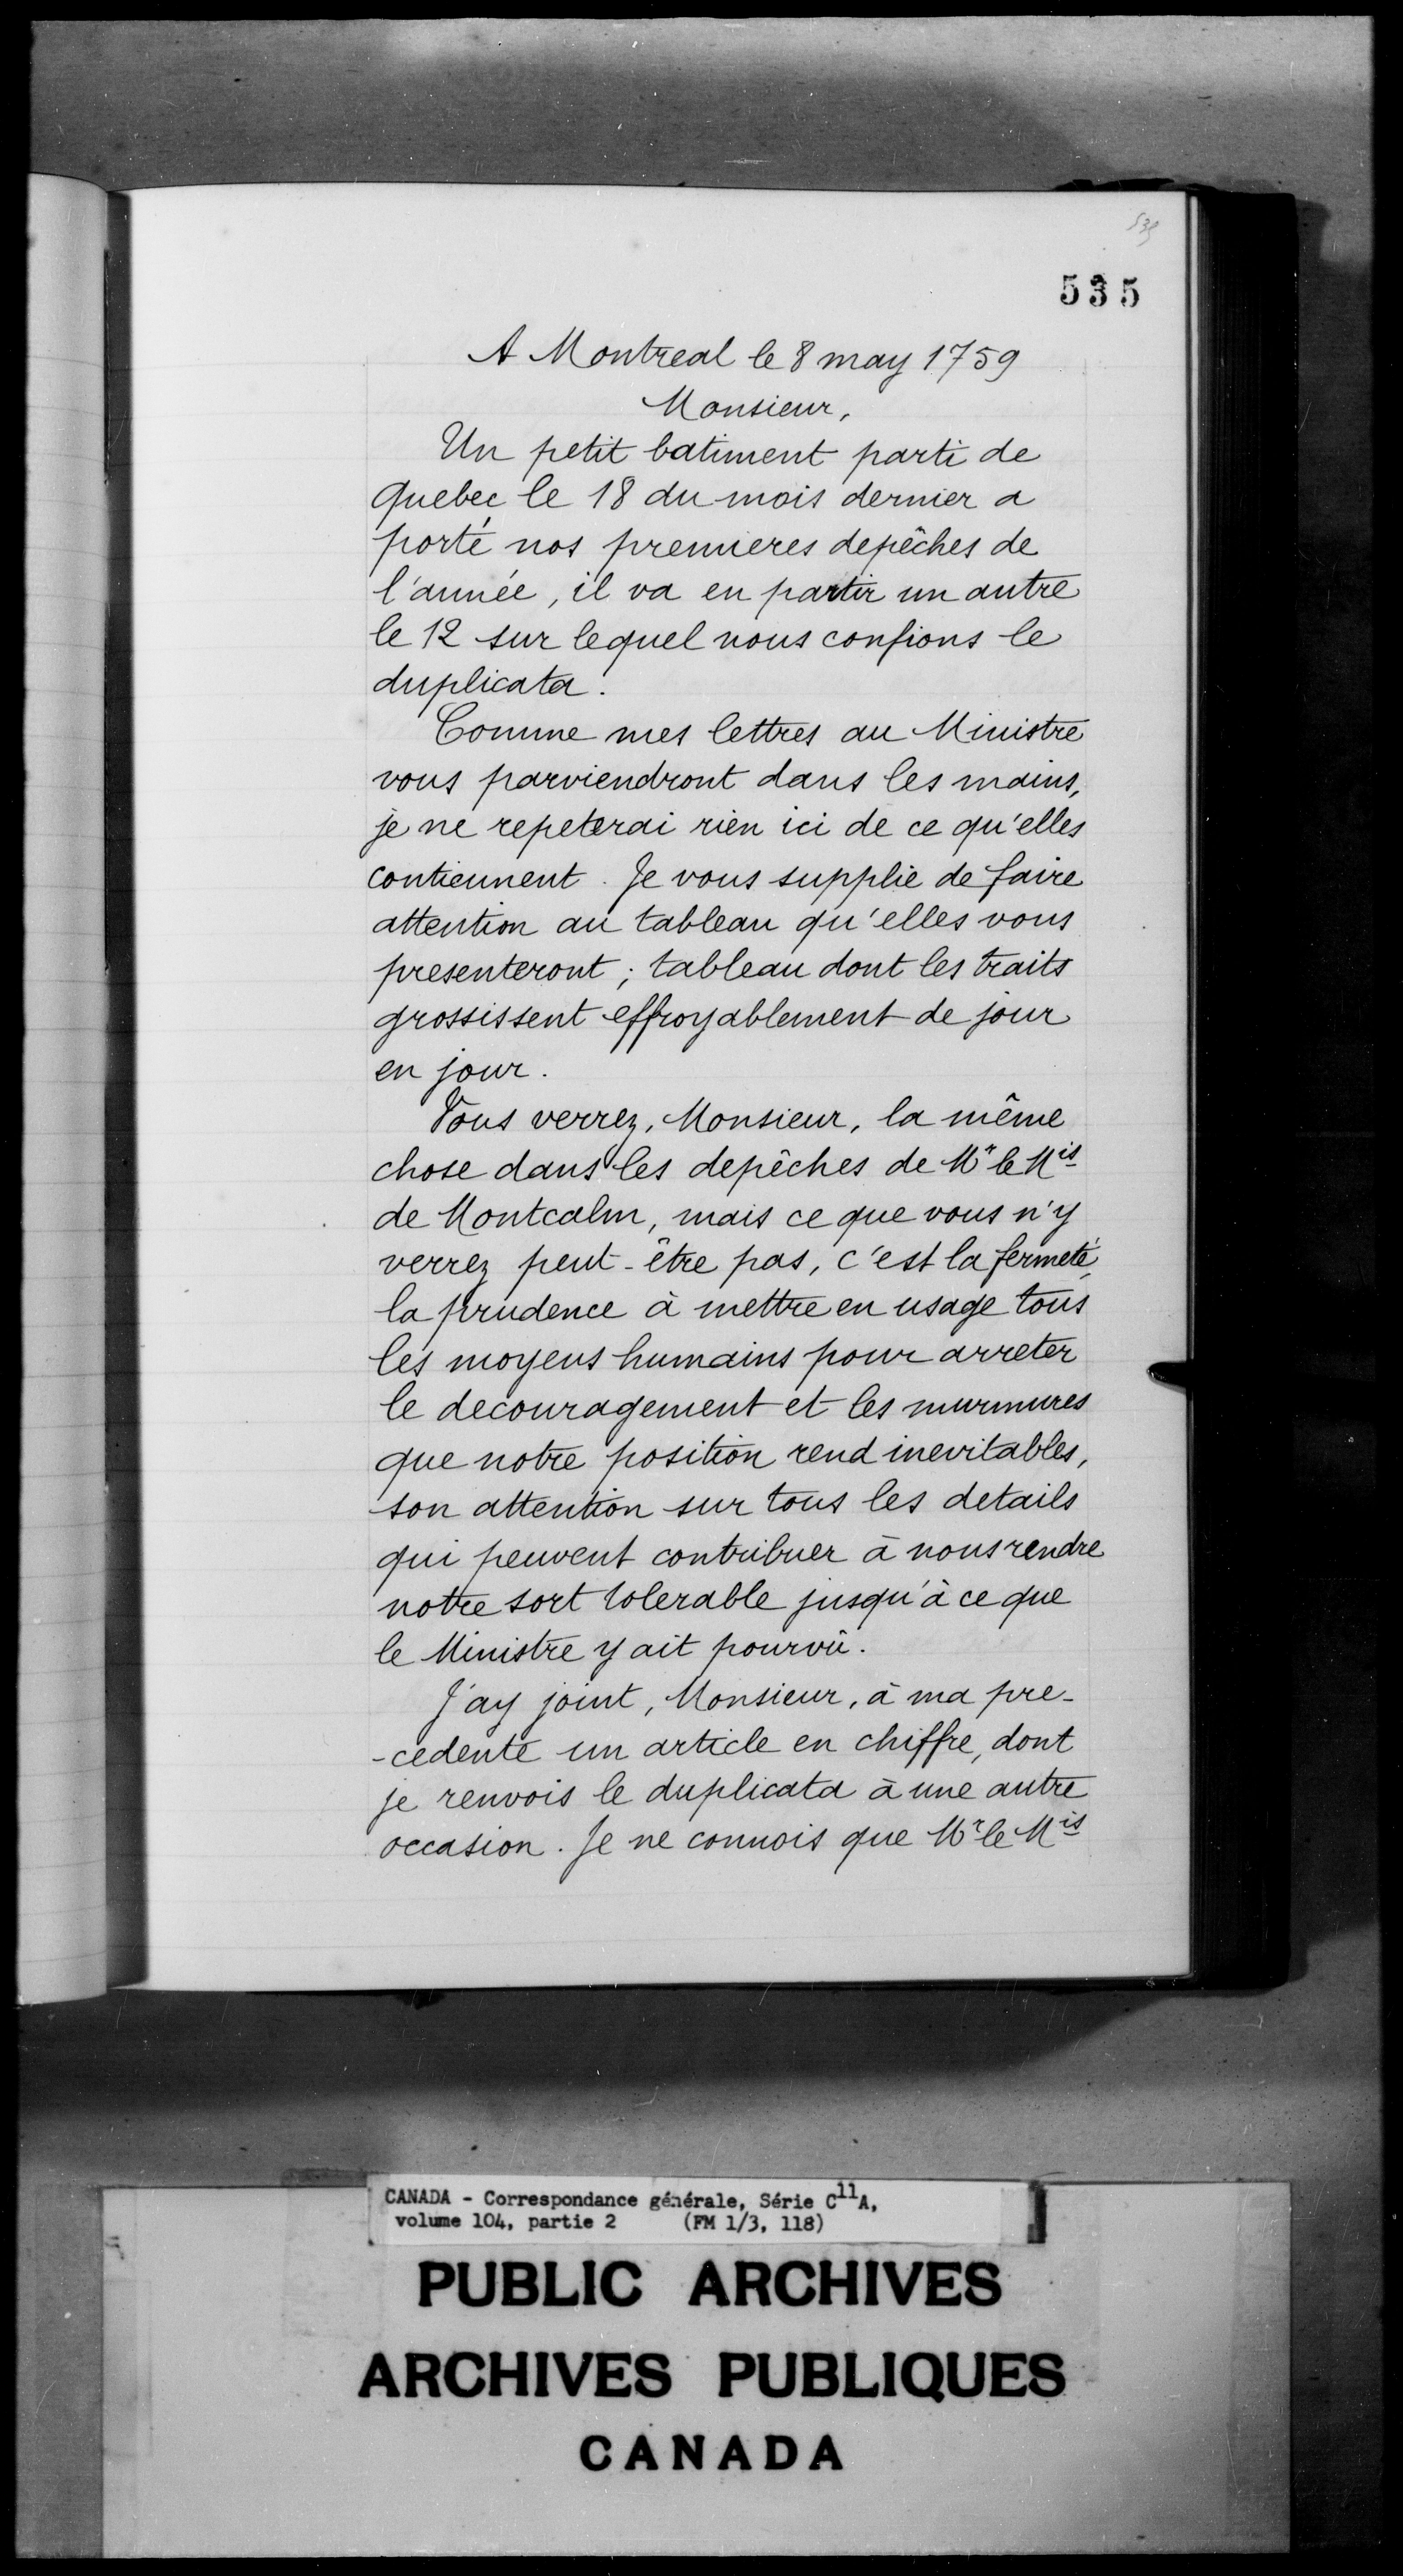 535
A Montreal le 8 may 1759
Monsieur,
Un petit batiment parti de
Quebec le 18 du mois dernier a
porté nos premieres depêches de
l'année, il va en partir un autre
le 12 sur lequel nous confions le
duplicata.
Comme mes lettres au Ministre
vous parviendront dans les mains,
je ne repeterai rien ici de ce qu'elles
contiennent. Je vous supplie de faire
attention au tableau qu'elles vous
presenteront; tableau dont les traits
grossissent effroyablement de jour
en jour.
Vous verrez, Monsieur, la même
chose dans les depêches de Mr le Mis
de Montcalm, mais ce que vous n'y
verrez peut-être pas, c'est la fermeté,
la prudence à mettre en usage tous
les moyens humains pour arreter
le decouragement et les murmures
que notre position rend inevitables,
son attention sur tous les details
qui peuvent contribuer à nous rendre
notre sort tolerable jusqu'à ce que
le Ministre y ait pourvû.
J'ay joint, Monsieur, à ma pre-
-cedente un article en chiffre, dont
je renvois le duplicata à une autre
occasion. Je ne connois que Mr le Mis
CANADA - Correspondance générale, Série C11A,
volume 104, partie 2 (FM 1/3, 118)
PUBLIC ARCHIVES
ARCHIVES PUBLIQUES
CANADA